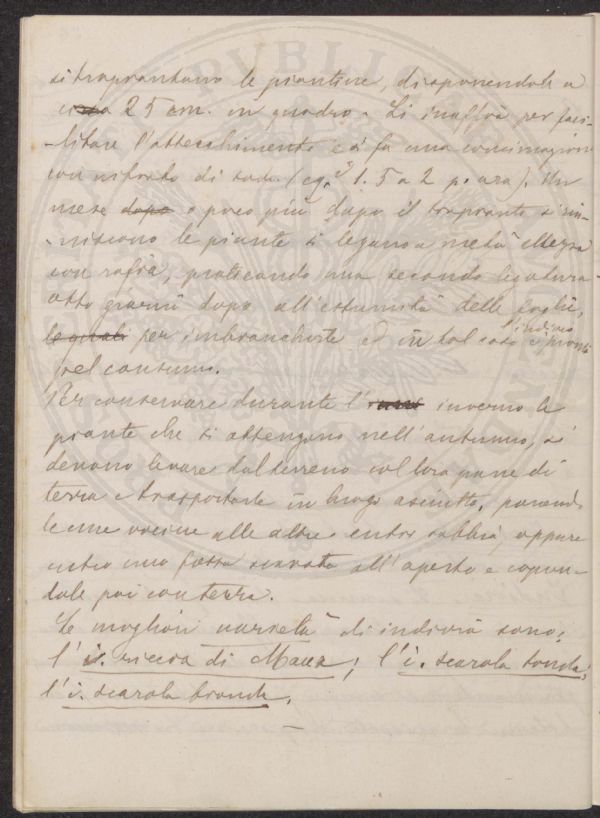 si trapiantano le piantine, disponendole a
circa 25 cm. in quadro. Si inaffia per faci-
-litare l'attecchimento e si fa una concimazione
con nitrato di soda (cg. 1.5 a 2 p. ara). Un
mese dopo o poco più dopo il trapianto s'im-
-niscono le piante si legano a metà altezza
con rafia, praticando una seconda legatura
otto giorni dopo all'estremità delle foglie,
le quali per imbianchirle ed in tal caso l'indivia è pronta
pel consumo.
Per conservare durante l' inverno le
piante che si ottengono nell'autunno, si
devono levare dal terreno col loro pane di
terra e trasportarle in luogo asciutto, ponendo
le une vicine alle altre entro sabbia, oppure
entro una fossa scavata all'aperto e copren-
dole poi con terra.
Le migliori varietà di indivia sono:
l'i. riccia di Meaux; l'i. scarola tonda;
l'i. scarola bionda.